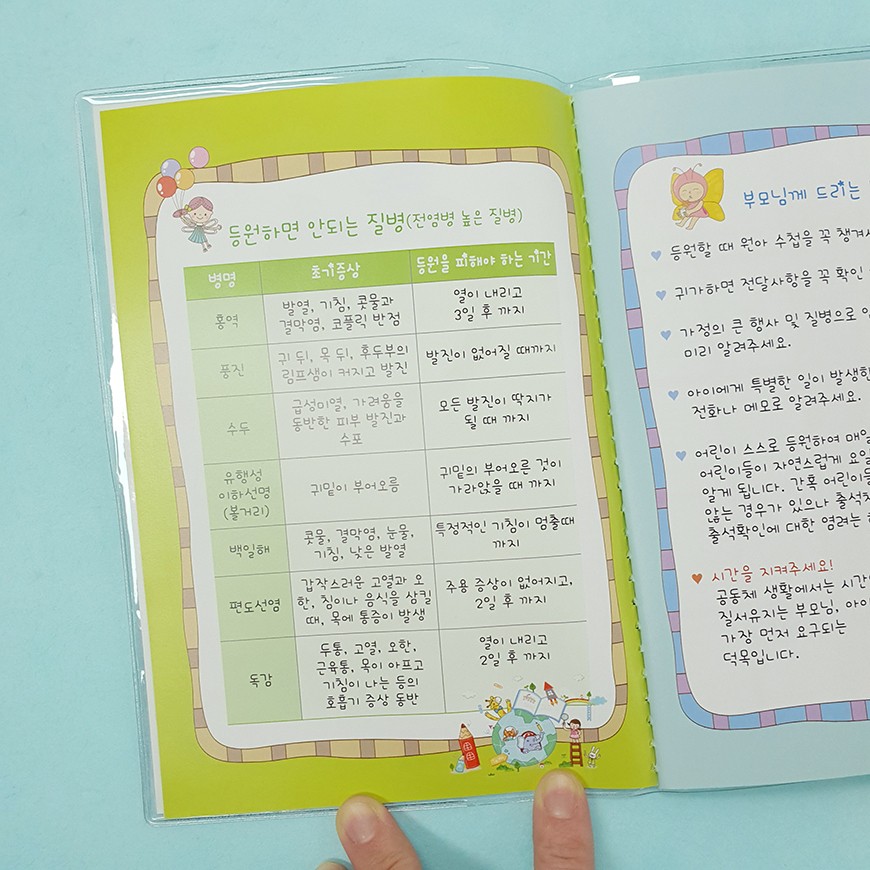 등원하면 안되는 질병(전염병 높은 질병)
병명 초기증상 등원을 피해야 하는 기간
홍역
발열, 기침, 콧물과
결막염, 코플릭 반점
열이 내리고
3일 후 까지
풍진
귀 뒤, 목 뒤, 후두부의
림프샘이 커지고 발진
발진이 없어질 때까지
수두
급성미열, 가려움을
동반한 피부 발진과
수포
모든 발진이 딱지가
될 때 까지
유행성
이하선명
(볼거리)
귀밑이 부어오름
귀밑의 부어오른 것이
가라앉을 때 까지
백일해
콧물, 결막염, 눈물,
기침, 낮은 발열
특정적인 기침이 멈출때
까지
편도선염
갑작스러운 고열과 오
한, 침이나 음식을 삼킬
때, 목에 통증이 발생
주용 증상이 없어지고,
2일 후 까지
독감
두통, 고열, 오한,
근육통, 목이 아프고
기침이 나는 등의
호흡기 증상 동반
열이 내리고
2일 후 까지
부모님께 드리는
등원할 때 원아 수첩을 꼭
귀가하면 전달사항을 꼭 확인
가정의 큰 행사 및 질병으로
미리 알려주세요.
아이에게 특별한 일이 발생한
전화나 메모로 알려주세요.
어린이 스스로 등원하여
어린이들이 자연스럽게
알게 됩니다. 간혹 어린이들
않는 경우가 있으나
출석확인에 대한 염려는
시간을 지켜주세요!
공동체 생활에서는
질서유지는 부모님,
가장 먼저 요구되는
덕목입니다.